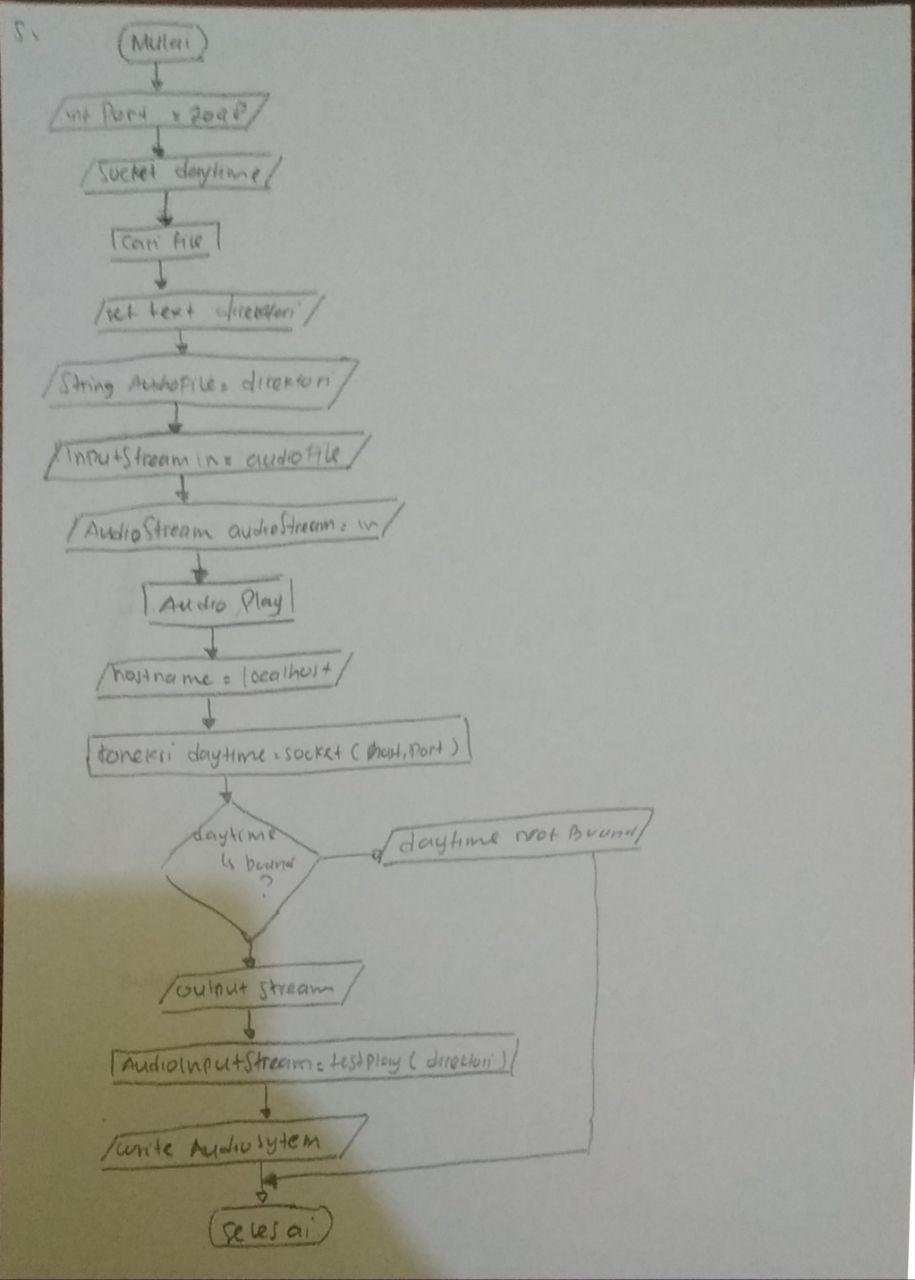 5.
Mulai
int Port = 2048
Socket daytime
Cari file
set text direktori
String AudioFile = direktori
InputStream in = audioFile
AudioStream audioStream = in
Audio Play
hostname = localhost
koneksi daytime = socket (host, port)
daytime
is bound
?
daytime not Bound
output stream
AudioInputStream = testPlay (direktori)
write AudioSytem
selesai